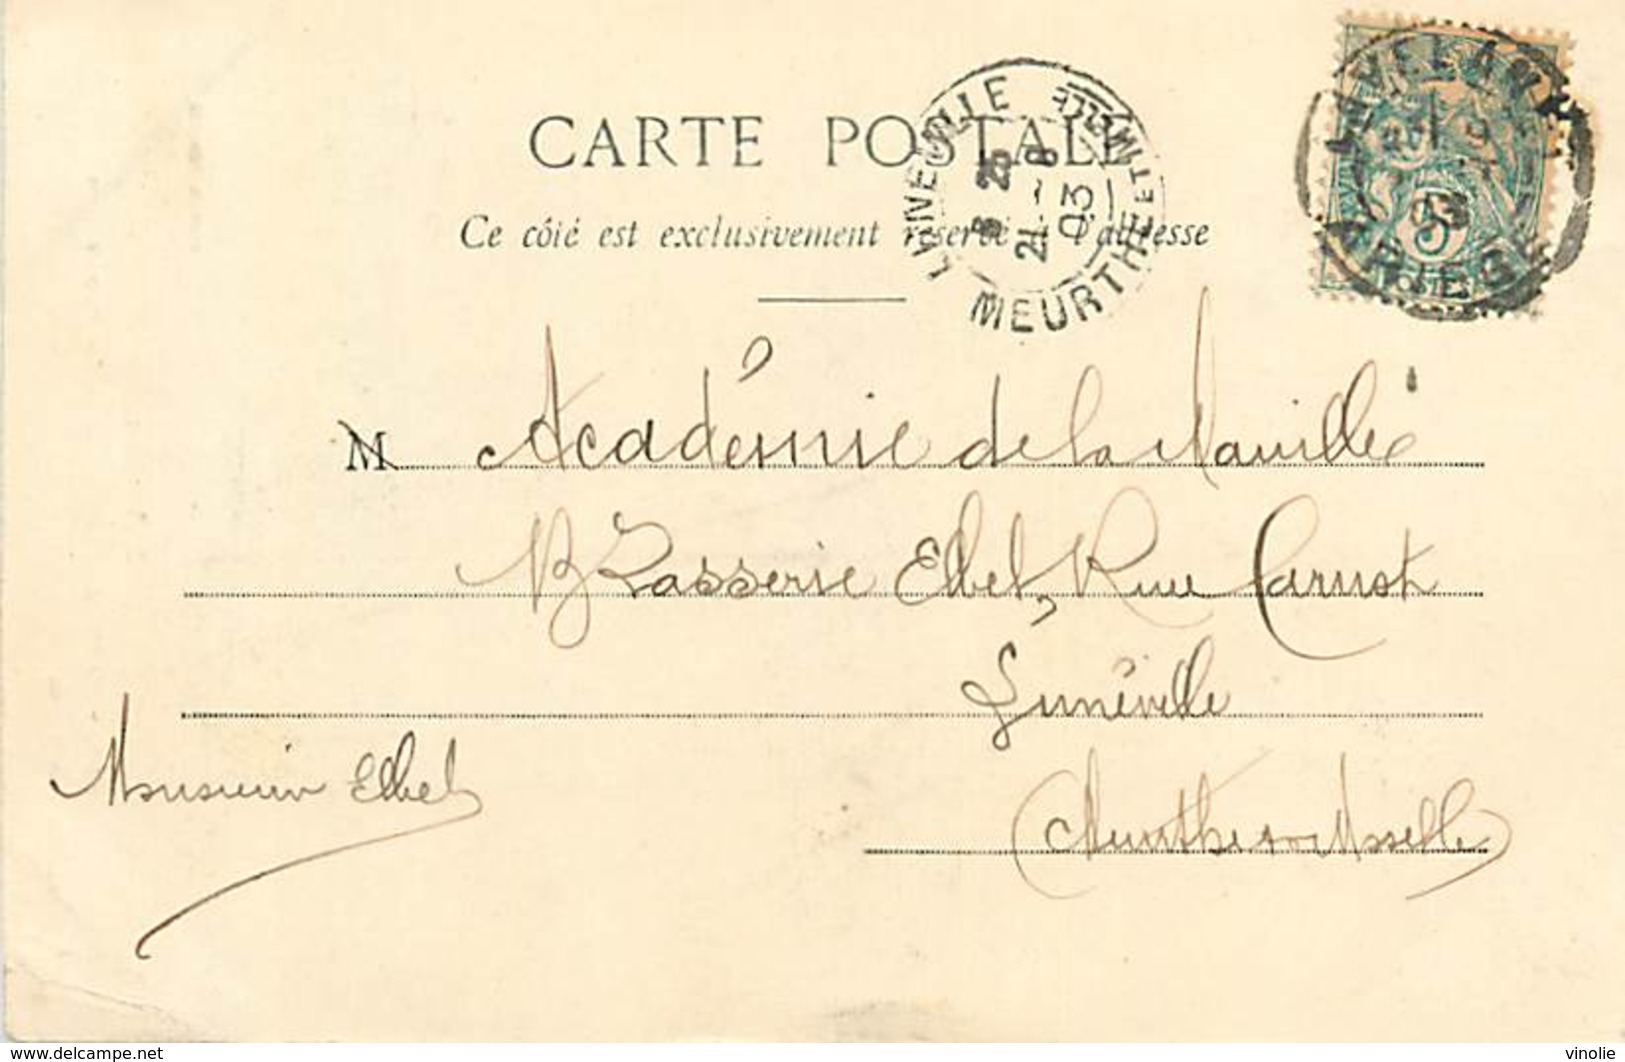 CARTE POSTALE
Ce côté est exclusivement réservé à l'adresse
LUNEVILLE
8 25
21 - 8
03
MEURTHE ET MOSELLE
LAVELANET
03
ARIEGE
5
POSTES
M Académie de la Manille
Brasserie Elbel, Rue Carnot
Lunéville
(Meurthe et Moselle)
Monsieur Elbel
www.delcampe.net
vinolie